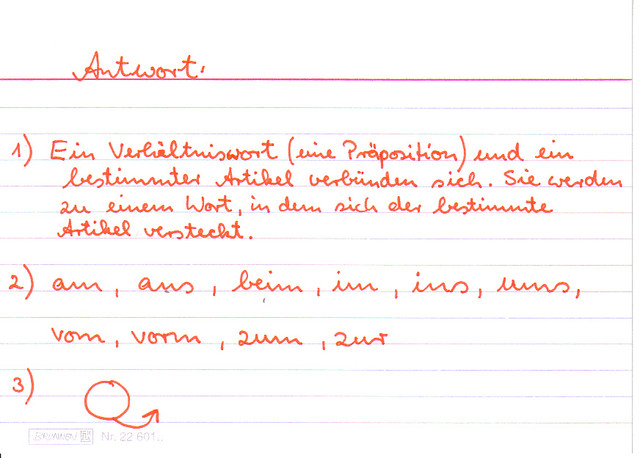 Antwort:
1) Ein Verhältniswort (eine Präposition) und ein
bestimmter Artikel verbünden sich. Sie werden
zu einem Wort, in dem sich der bestimmte
Artikel versteckt.
2) am, ans, beim, im, ins, ums,
vom, vorm, zum, zur
3)
BRUNNEN Nr. 22 601